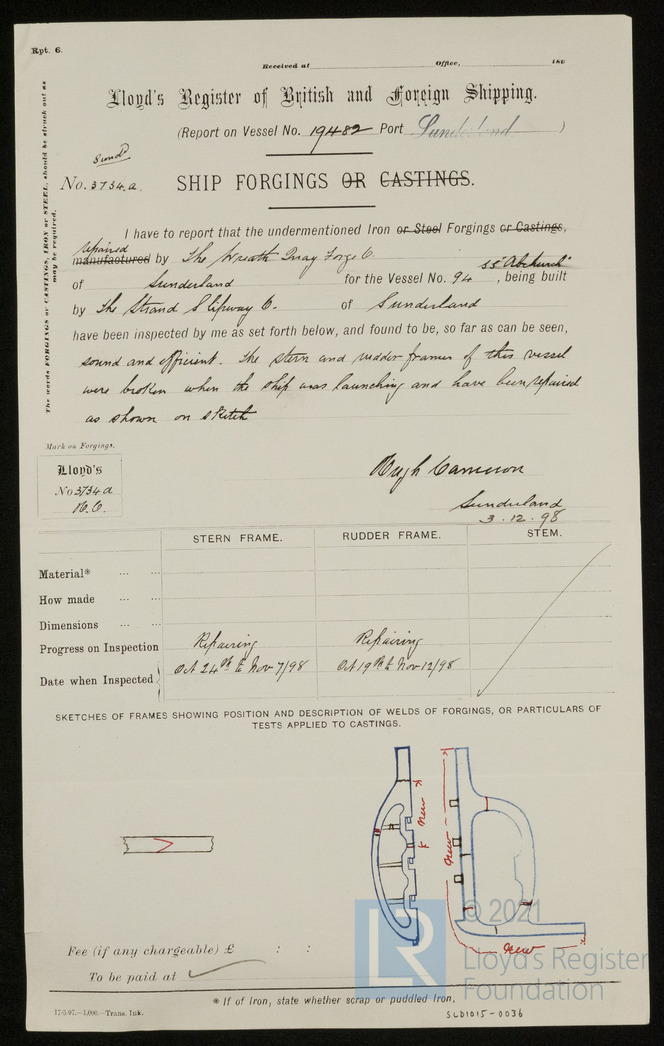 Rpt. 6.
Received at Office, 180
Lloyd's Register of British and Foreign Shipping.
(Report on Vessel No. 19482 Port Sunderland )
Sund^d
No. 3734.a. SHIP FORGINGS OR CASTINGS.
The words FORGINGS or CASTINGS, IRON or STEEL, should be struck out as
may be required.
I have to report that the undermentioned Iron or Steel Forgings or Castings,
repaired
manufactured by The Wreath Quay Forge Co.
SS "Abchurch"
of Sunderland for the Vessel No. 94 , being built
by The Strand Slipway Co. of Sunderland
have been inspected by me as set forth below, and found to be, so far as can be seen,
sound and efficient. The stern and rudder frames of this vessel
were broken when the ship was launching and have been repaired
as shown on sketch
Mark on Forgings.
Lloyd's
No 3734a
H.C.
Hugh Cameron
Sunderland
3.12.98
STERN FRAME. RUDDER FRAME. STEM.
Material* ... ...
How made ... ...
Dimensions ... ...
Progress on Inspection Repairing Repairing
Date when Inspected Oct 24th to Nov 7/98 Oct 19th to Nov 12/98
SKETCHES OF FRAMES SHOWING POSITION AND DESCRIPTION OF WELDS OF FORGINGS, OR PARTICULARS OF
TESTS APPLIED TO CASTINGS.
new
new
new
© 2021
Lloyd's Register
Foundation
LR
Fee (if any chargeable) £ : :
To be paid at
* If of Iron, state whether scrap or puddled Iron.
17/5/97.—1,000.—Trans. Ink.
SLD1015-0036